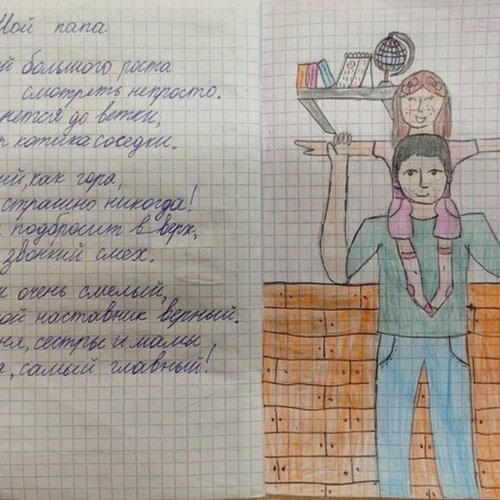 Мой папа
большого роста
смотреть непросто.
до ветки,
котика соседки.
как гора,
страшно никогда!
подбросит в верх,
звонкий смех.
очень смелый,
наставник верный.
сестры и мамы
самый главный!